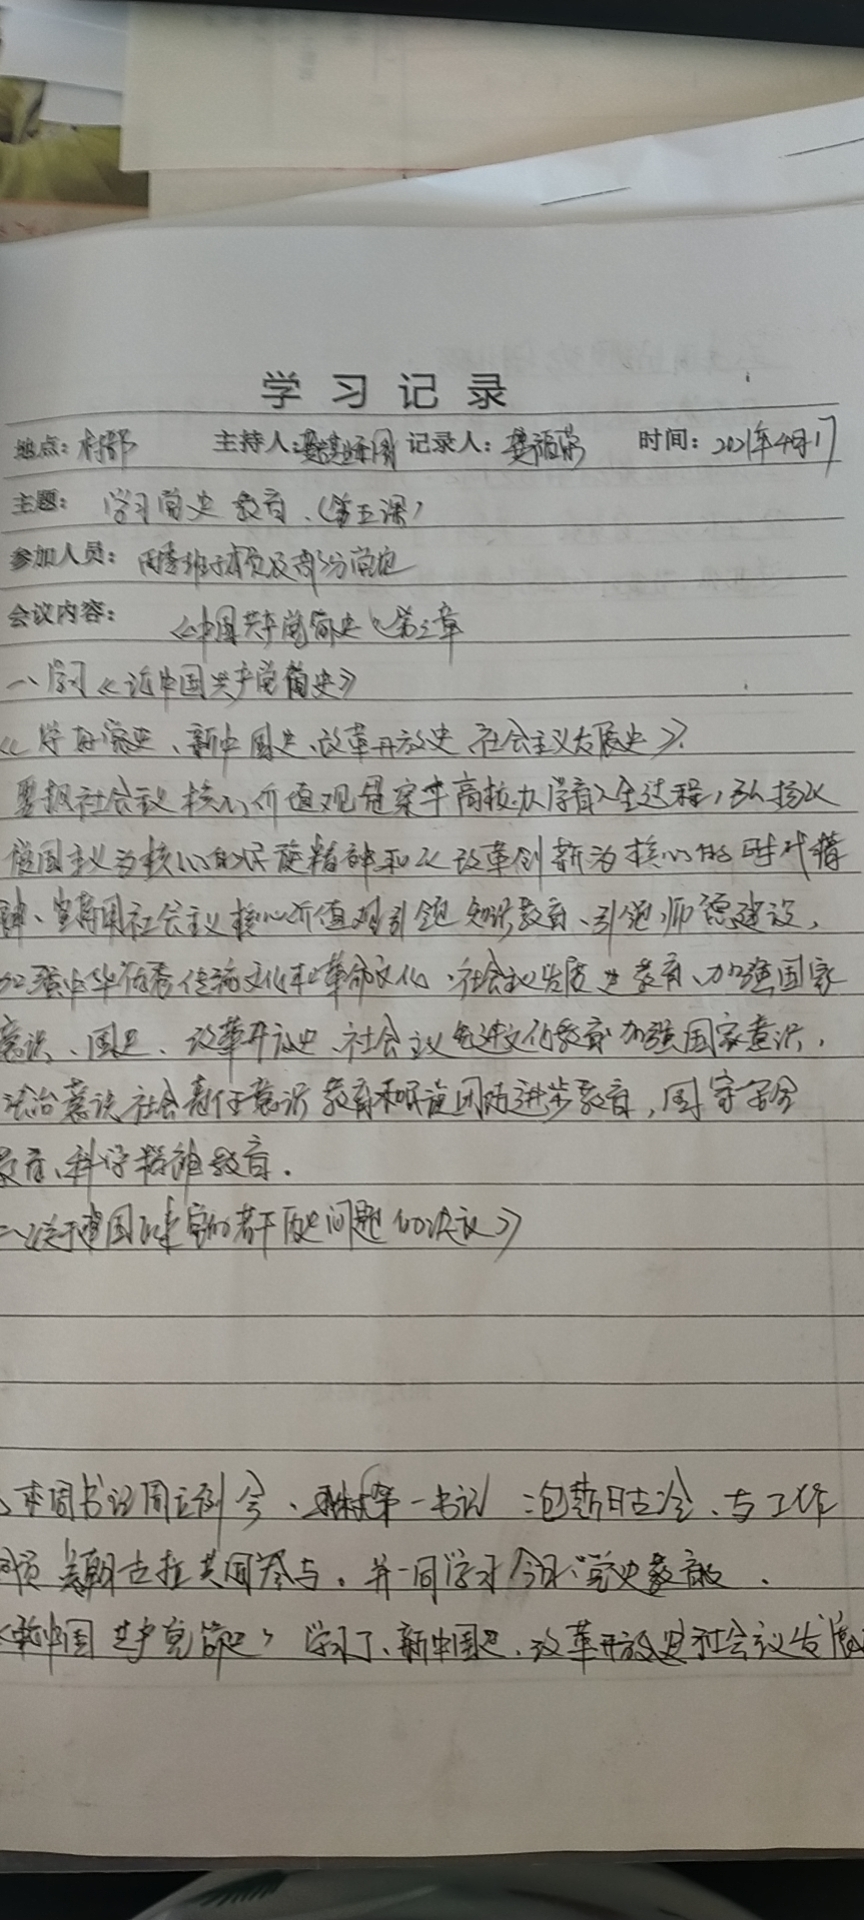 学习记录
地点：村部 主持人： 记录人：樊福荣 时间：2021年4月17
主题：学习党史教育、（第五课）
参加人员：两委班子成员及部分党员
会议内容：《中国共产党简史》第三章
一、学习《近中国共产党简史》
《学好党史、新中国史、改革开放史 社会主义发展史》。
要把社会主义核心价值观 高校办学育人全过程，弘扬以
爱国主义为核心的民族精神和以改革创新为核心的时代精
神、坚持用社会主义核心价值观引领知识教育、引领师德建设，
加强中华优秀传统文化和革命文化、社会主义发展史教育、加强国家
意识、国史、改革开放史、社会主义先进文化教育加强国家意识，
法治意识社会责任意识教育和民族团结进步教育，国家安全
教育、科学精神教育．
二《关于建国以来党的若干历史问题的决议》
本周书记周立例会、 第一书记：包 日古冷、与工作
朝古拉共同参与。并一同学习今日党史教育
中国共产党简史》学习了、新中国史、改革开放史社会主义发展